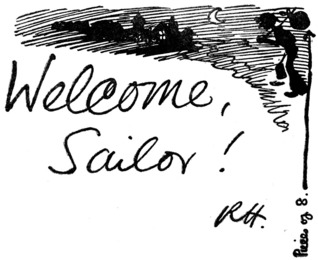 Welcome,
Sailor!
RH.
Piece of 8.